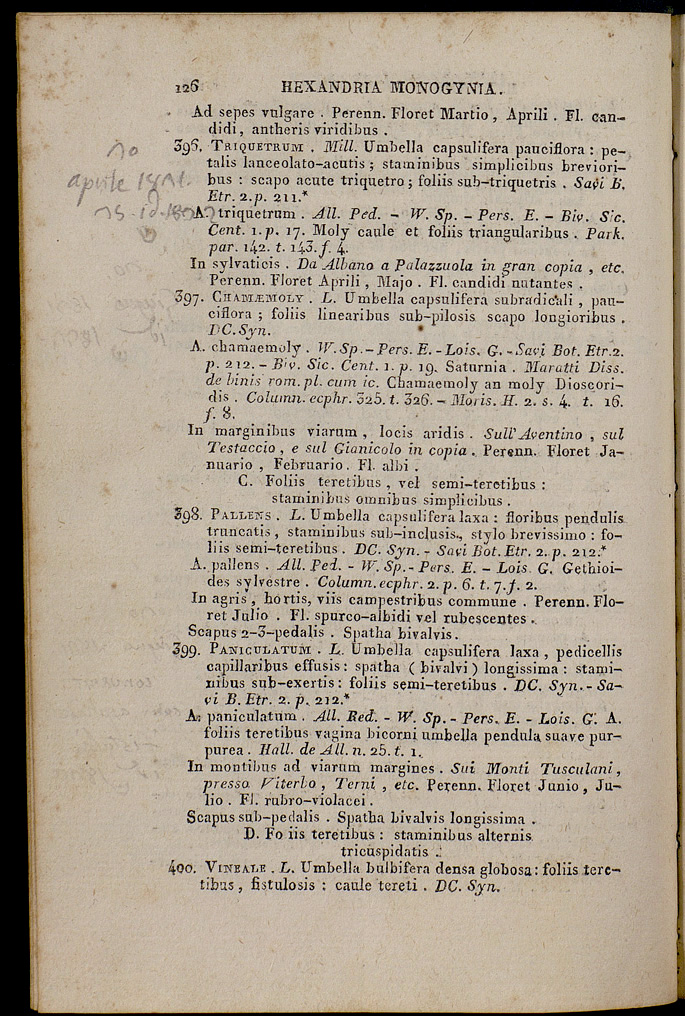 126 HEXANDRIA MONOGYNIA.
Ad sepes vulgare . Perenn. Floret Martio, Aprili . Fl. can-
didi, antheris viridibus .
396. TRIQUETRUM . Mill. Umbella capsulifera pauciflora : pe-
talis lanceolato-acutis ; staminibus simplicibus breviori-
bus : scapo acute triquetro ; foliis sub-triquetris . Savi B.
Etr. 2. p. 211.*
A. triquetrum . All. Ped. - W. Sp. - Pers. E. - Biv. Sic.
Cent. 1. p. 17. Moly caule et foliis triangularibus . Park.
par. 142. t. 143. f. 4.
In sylvaticis . Da Albano a Palazzuola in gran copia , etc.
Perenn. Floret Aprili , Majo . Fl. candidi nutantes .
397. CHAMÆMOLY . L. Umbella capsulifera subradicali , pau-
ciflora ; foliis linearibus sub-pilosis scapo longioribus .
DC. Syn.
A. chamaemoly . W. Sp. - Pers. E. - Lois. G. - Savi Bot. Etr. 2.
p. 212. - Biv. Sic. Cent. 1. p. 19. Saturnia . Maratti Diss.
de binis rom. pl. cum ic. Chamaemoly an moly Dioscori-
dis . Column. ecphr. 325. t. 326. - Moris. H. 2. s. 4. t. 16.
f. 8.
In marginibus viarum , locis aridis . Sull' Aventino , sul
Testaccio , e sul Gianicolo in copia . Perenn. Floret Ja-
nuario , Februario . Fl. albi .
C. Foliis teretibus , vel semi-teretibus :
staminibus omnibus simplicibus .
398. PALLENS . L. Umbella capsulifera laxa : floribus pendulis
truncatis , staminibus sub-inclusis, stylo brevissimo : fo-
liis semi-teretibus . DC. Syn. - Savi Bot. Etr. 2. p. 212.*
A. pallens . All. Ped. - W. Sp. - Pers. E. - Lois. G. Gethioi-
des sylvestre . Column. ecphr. 2. p. 6. t. 7. f. 2.
In agris , hortis, viis campestribus commune . Perenn. Flo-
ret Julio . Fl. spurco-albidi vel rubescentes .
Scapus 2-3-pedalis . Spatha bivalvis .
399. PANICULATUM . L. Umbella capsulifera laxa , pedicellis
capillaribus effusis : spatha ( bivalvi ) longissima : stami-
nibus sub-exertis : foliis semi-teretibus . DC. Syn. - Sa-
vi B. Etr. 2. p. 212.*
A. paniculatum . All. Red. - W. Sp. - Pers. E. - Lois. G. A.
foliis teretibus vagina bicorni umbella pendula suave pur-
purea . Hall. de All. n. 25. t. 1.
In montibus ad viarum margines . Sui Monti Tusculani ,
presso Viterbo , Terni , etc. Perenn. Floret Junio , Ju-
lio . Fl. rubro-violacei .
Scapus sub-pedalis . Spatha bivalvis longissima .
D. Fo iis teretibus : staminibus alternis
tricuspidatis .
400. VINEALE . L. Umbella bulbifera densa globosa : foliis tere-
tibus , fistulosis : caule tereti . DC. Syn.